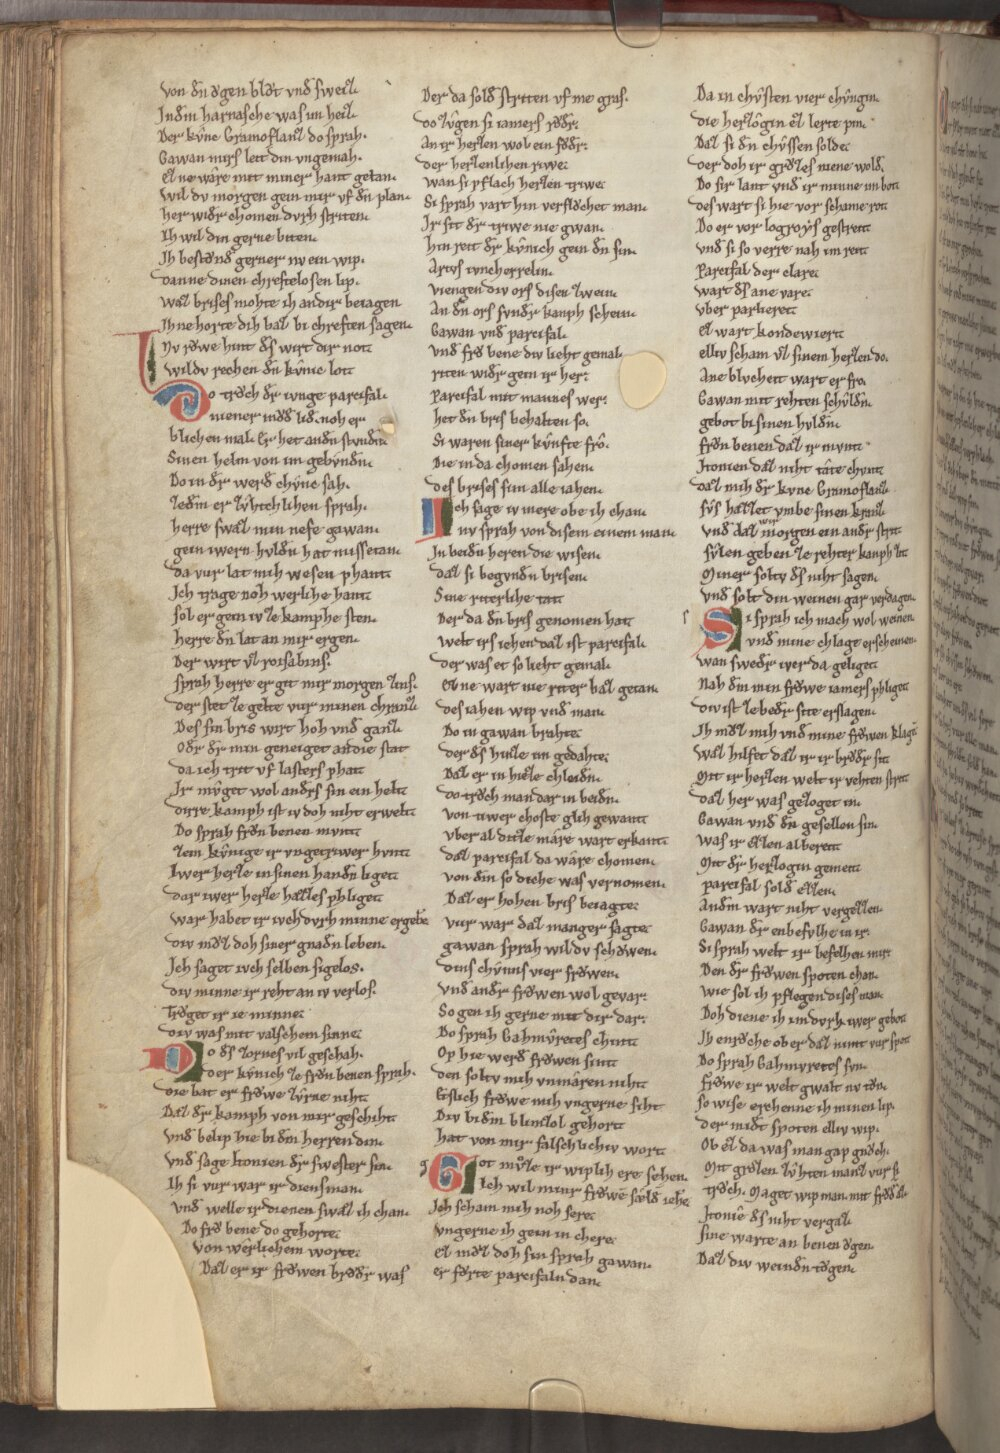 von dn ǒgen blůt vnd sweiz.
In dem harnasche was im heiz.
Der kůne Gramoflanz do sprah.
Gawan mirs leit din vngemah.
Ez ne wâre mit miner hant getan.
Wil dv morgen gein mir vf dn plan.
her wider chomen dvrh striten.
Ih wil din gerne biten.
Ih bestůnd gerner nv ein wip.
danne dinen chreftelosen lip.
waz brises mohte ih an dir beiagen
Ihne horte dih baz bi chreften sagen.
Nv rǒwe hint des wirt dir not.
wildv rechen dn kůnic lot.
Do trůch der ivnge parcifal.
niener mǒd lid. noh er
blichen mal. Er het andn stvndn.
Sinen helm von im gebvndn.
Do in der werd chvnc sah.
zedem er zvhtchlichen sprah.
herre swaz min nefe gawan.
gein iwern hvldn hat missetan.
da vur lat mih wesen phant.
Ich trage noh werliche hant.
sol er gein iv ze kamphe sten.
herre dn lat an mir ergen.
Der wirt vz roisabins.
sprah herre er git mir morgen zins.
der stet ze gelte vur minen chranz
Des sin bris wirt hoh vnd ganz.
Oder der min geneiget an die stat
da ich trit vf lasters phat.
Ir mvget wol anders sin ein helt.
dirre kamph ist iv doh niht erwelt.
Do sprah fron benen mvnt.
zem kvnige ir vngetriwer hvnt.
Iwer herze in sinen handn liget.
dar iwer herze hazzes phliget.
war habet ir iveh dvrh minne ergebē
div mǒz doh siner gnadn leben.
Ich saget iveh selben sigelos.
div minne ir reht an iv verlos.
Trůget ir ie minne.
div was mit valschem sinne.
Do des zornes vil geschah.
der kvnich ze fron benen sprah.
die bat er frǒwe zvrne niht.
Daz der kamph von mir geschiht.
vnd belip hie bi dem herren din.
vnd sage Itonien der swester sin.
Ih si vur war ir dienst man.
vnd welle ir dienen swaz ih chan.
Do fro bene do gehorte.
Von wêrlichem worte.
Daz er ir frǒwen brǒder was
Der da sold striten vf me gras.
do zvgen si iamers rǒdr.
An ir herzen wol ein fǒdr.
der herzenlichen riwe.
wan si pflach herzen triwe.
Si sprah vart hin verflůchet man.
Ir sit der triwe nie gwan.
hin reit der kvnich gein dn sin.
Artvs ivncherrelin.
viengen div ors disen zwein.
An dn ors svndr kanph schein.
Gawan vnd parcifal.
vnd fro bene div lieht gemal.
riten wider gein ir her.
Parcifal mit mannes wer.
het dn bris behalten so.
Si waren siner kvnfte frô.
Die in da chomen sahen.
des brises sim alle iahen.
Ich sage iv mere obe ih chan.
nv sprah von disem einem man
In beidn heren die wisen.
daz si begvndn brisen.
Sine riterliche tat.
Der da dn bris genomen hat.
welt irs iehen daz ist parcifal.
der was et so lieht gemal.
Ez ne wart nie riter baz getan.
des iahen wip vnd man.
Do in gawan brahte.
der des hinze im gedahte.
Daz er in hieze chleidn.
do trůch man dar in beidn.
von tiwer choste glih gewant.
vber al ditze mâre wart erkant.
daz parcifal da wâre chomen.
von din so diche was vernomen.
Daz er hohen bris beiagte.
vur war daz manger sagte.
gawan sprah wildv schǒwen.
dins chvnnis vier frǒwen.
vnd andr frǒwen wol gevar.
So gen ih gerne mit dir dar.
Do sprah Gahmvretes chint.
Op hie werd frǒwen sint.
den soltv mih vnmâren niht.
Etslich frǒwe mih vngerne siht.
Div bi dem blimzol gehort
hat von mir falschlichiv wort
Got mvze ir wiplich ere sehen.
Ich wil mimr frǒwē sǎld iehē.
Ich scham mih noh sere.
vngerne ih gein in chere.
ez mǒz doh sin sprah gawan.
er fǒrte parcifaln dan.
Da in chvsten vier chvngin.
die herzogin ez lerte pin.
Daz si dn chvssen solde.
der doh ir grůzes niene wold.
Do sir lant vnd ir minne im bot.
des wart si hie vor schame rot.
Do er vor logroys gestreit
vnd si so verre nah im reit
Parcifal der clare.
wart des ane vare.
vber parlieret.
Ez wart kondewiert.
elliv scham vz sinem herzen do.
Ane blvcheit wart er fro.
Gawan mit rehten schvldn.
gebot bi sinen hvldn.
fron benen daz ir mvnt.
Itonien daz niht tâte chvnt.
daz mih der kvne Gramoflanz
svs hazzet vmbe sinen kranz
vnd daz wir morgen ein andr strit
svlen geben ze rehter kanph zit.
Miner soltv des niht sagen.
vnd solt din weinen gar verdagen.
Si sprah ich mach wol weinen
vnd mine chlage erscheinen.
wan swedr iwer da geliget.
Nah dem min frǒwe iamers phliget.
div ist ze bedr site erslagen.
Ih mǒz mih vnd mine frǒwen klagē
waz hilfet daz ir ir brǒdr sit.
Mit ir herzen welt ir vehten strit
daz her was gezoget in.
Gawan vnd dn gesellen sin.
was ir ezzen al bereit.
Mit der herzogin gemeit.
parcifal sold ezzen.
Andem wart niht vergezzen.
Gawan der enbefvlhe in ir.
Si sprah welt ir befelhen mir.
Den der frǒwen spoten chan.
wie sol ih pflegen dises man.
Doh diene ih im dvrh iwer gebot.
Ih enrůche ober daz nimt vur spot.
Do sprah Gahmvretes svn.
frǒwe ir welt gwalt nv tůn.
so wise erchenne ih minen lip.
der midt spoten elliv wip.
Ob ez da was man gap gnůch.
Mit grozen zvhten manz vur si
trůch. Maget wip man mit frǒdē az.
Itonîe des niht vergaz.
sine warte an benen ǒgen.
Daz div weindn tǒgen.